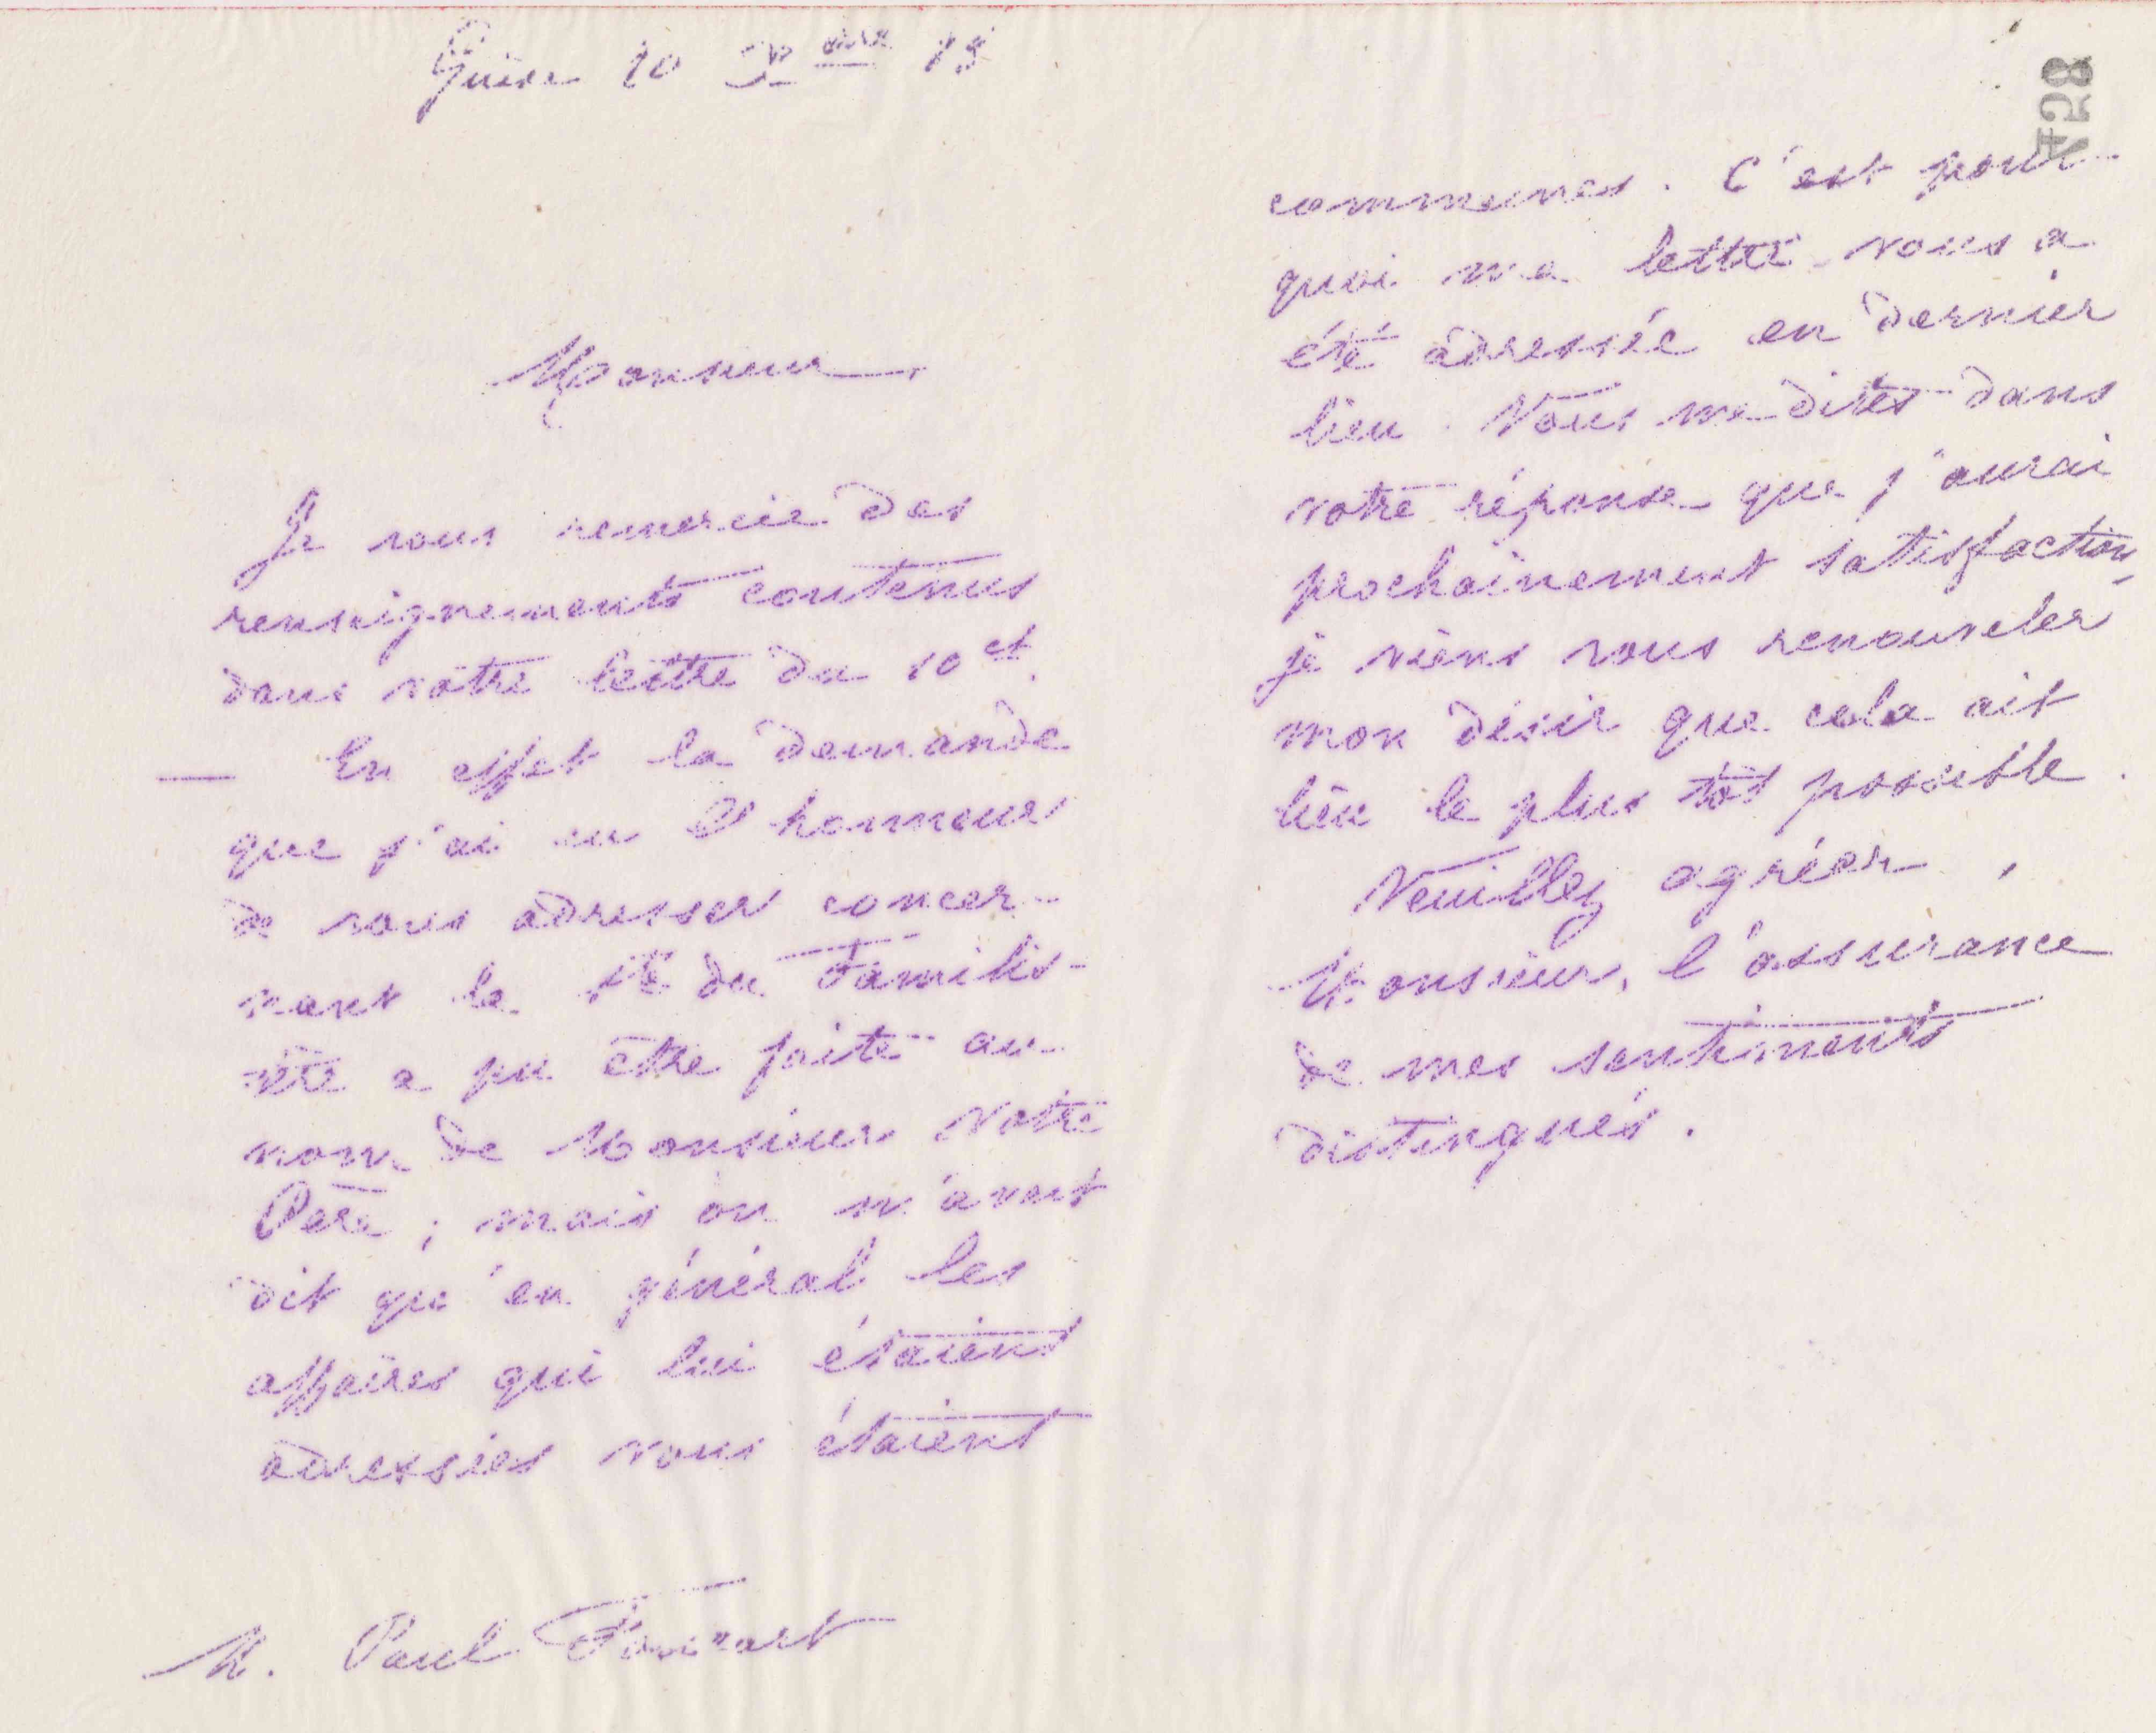 Guise 10 X<sup>bre</sup> 85
Monsieur,
Je vous remercie des
renseignements contenus
dans votre lettre du 10 ct.
— En effet la demande
que j'ai eu l'honneur
de vous adresser concer-
nant la Sté du Familis-
tère a pu être faite au
nom de Monsieur Votre
Père ; mais on m'avait
dit qu'en général les
affaires qui lui étaient
adressées vous étaient
M. Paul
communes. C'est pour-
quoi ma lettre vous a
été adressée en dernier
lieu. Vous me dites dans
votre réponse que j'aurai
prochainement satisfaction,
je viens vous renouveler
mon désir que cela ait
lieu le plus tôt possible.
Veuillez agréer,
Monsieur, l'assurance
de mes sentiments
distingués.
428